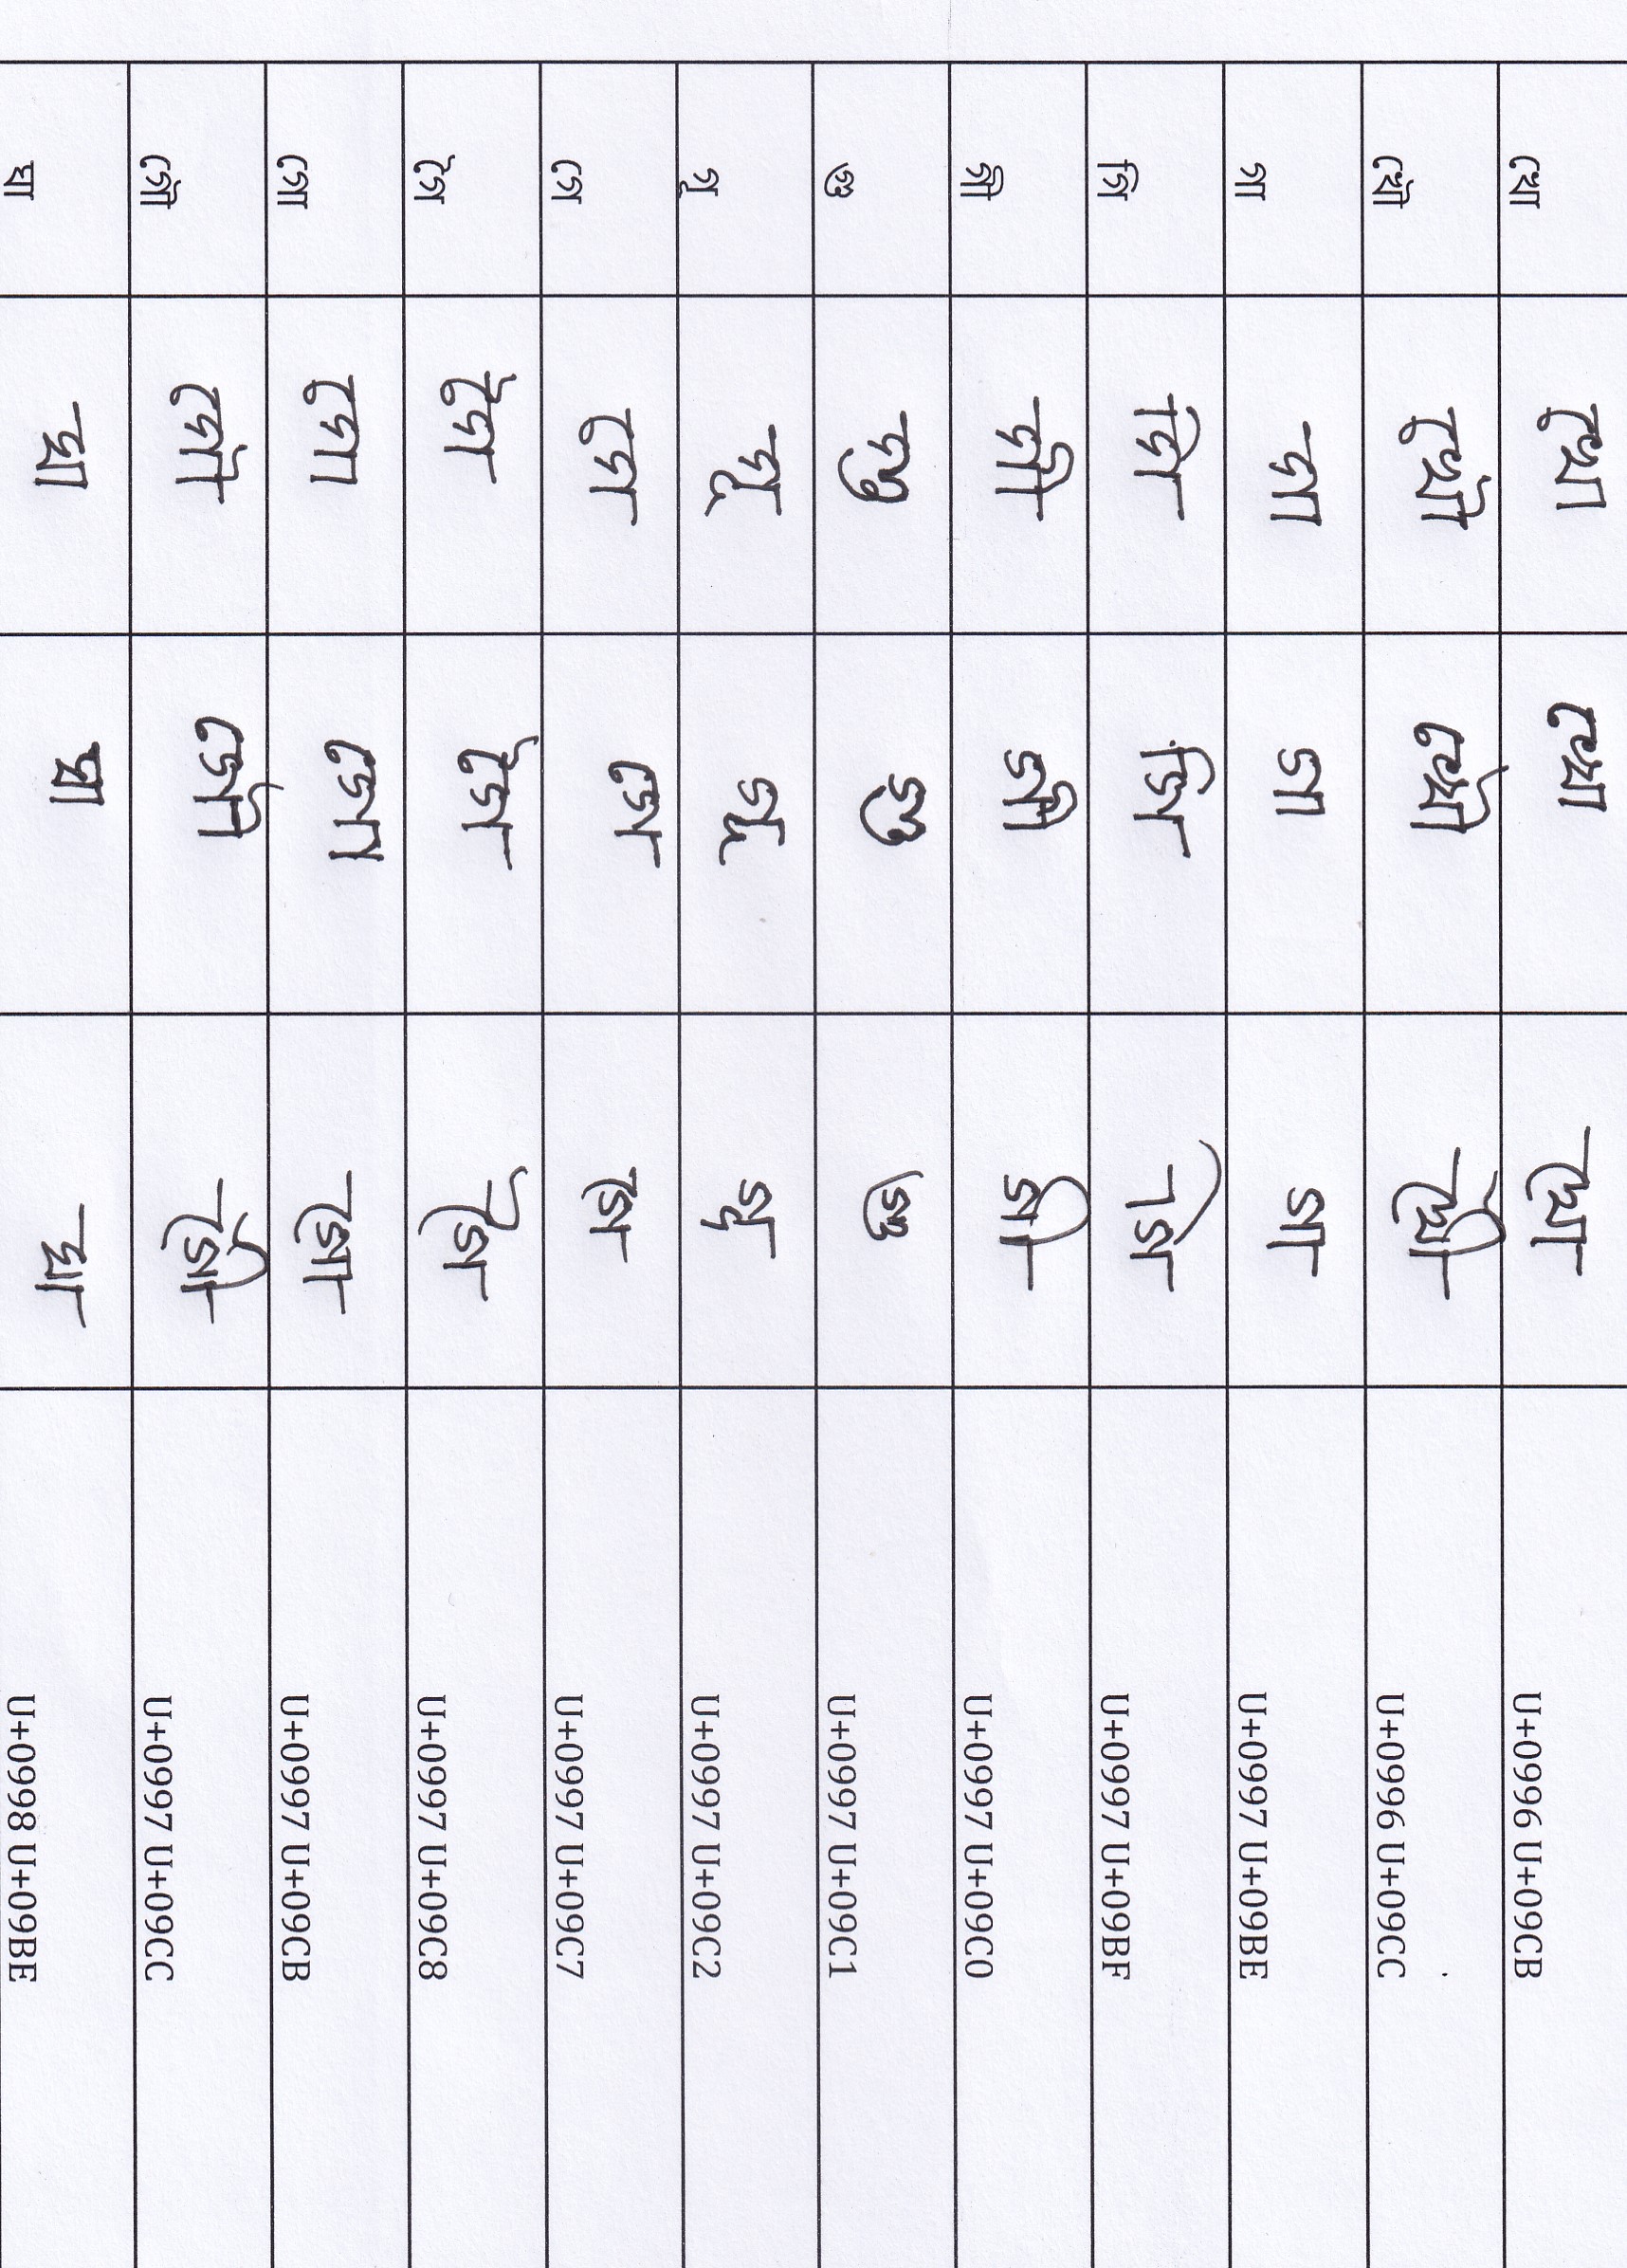 খো খো খো খো U+0996 U+09CB
খৌ খৌ খৌ খৌ U+0996 U+09CC
গা গা গা গা U+0997 U+09BE
গি গি গি গি U+0997 U+09BF
গী গী গী গী U+0997 U+09C0
গু গু গু গু U+0997 U+09C1
গূ গূ গূ গূ U+0997 U+09C2
গে গে গে গে U+0997 U+09C7
গৈ গৈ গৈ গৈ U+0997 U+09C8
গো গো গো গো U+0997 U+09CB
গৌ গৌ গৌ গৌ U+0997 U+09CC
ঘা ঘা ঘা ঘা U+0998 U+09BE